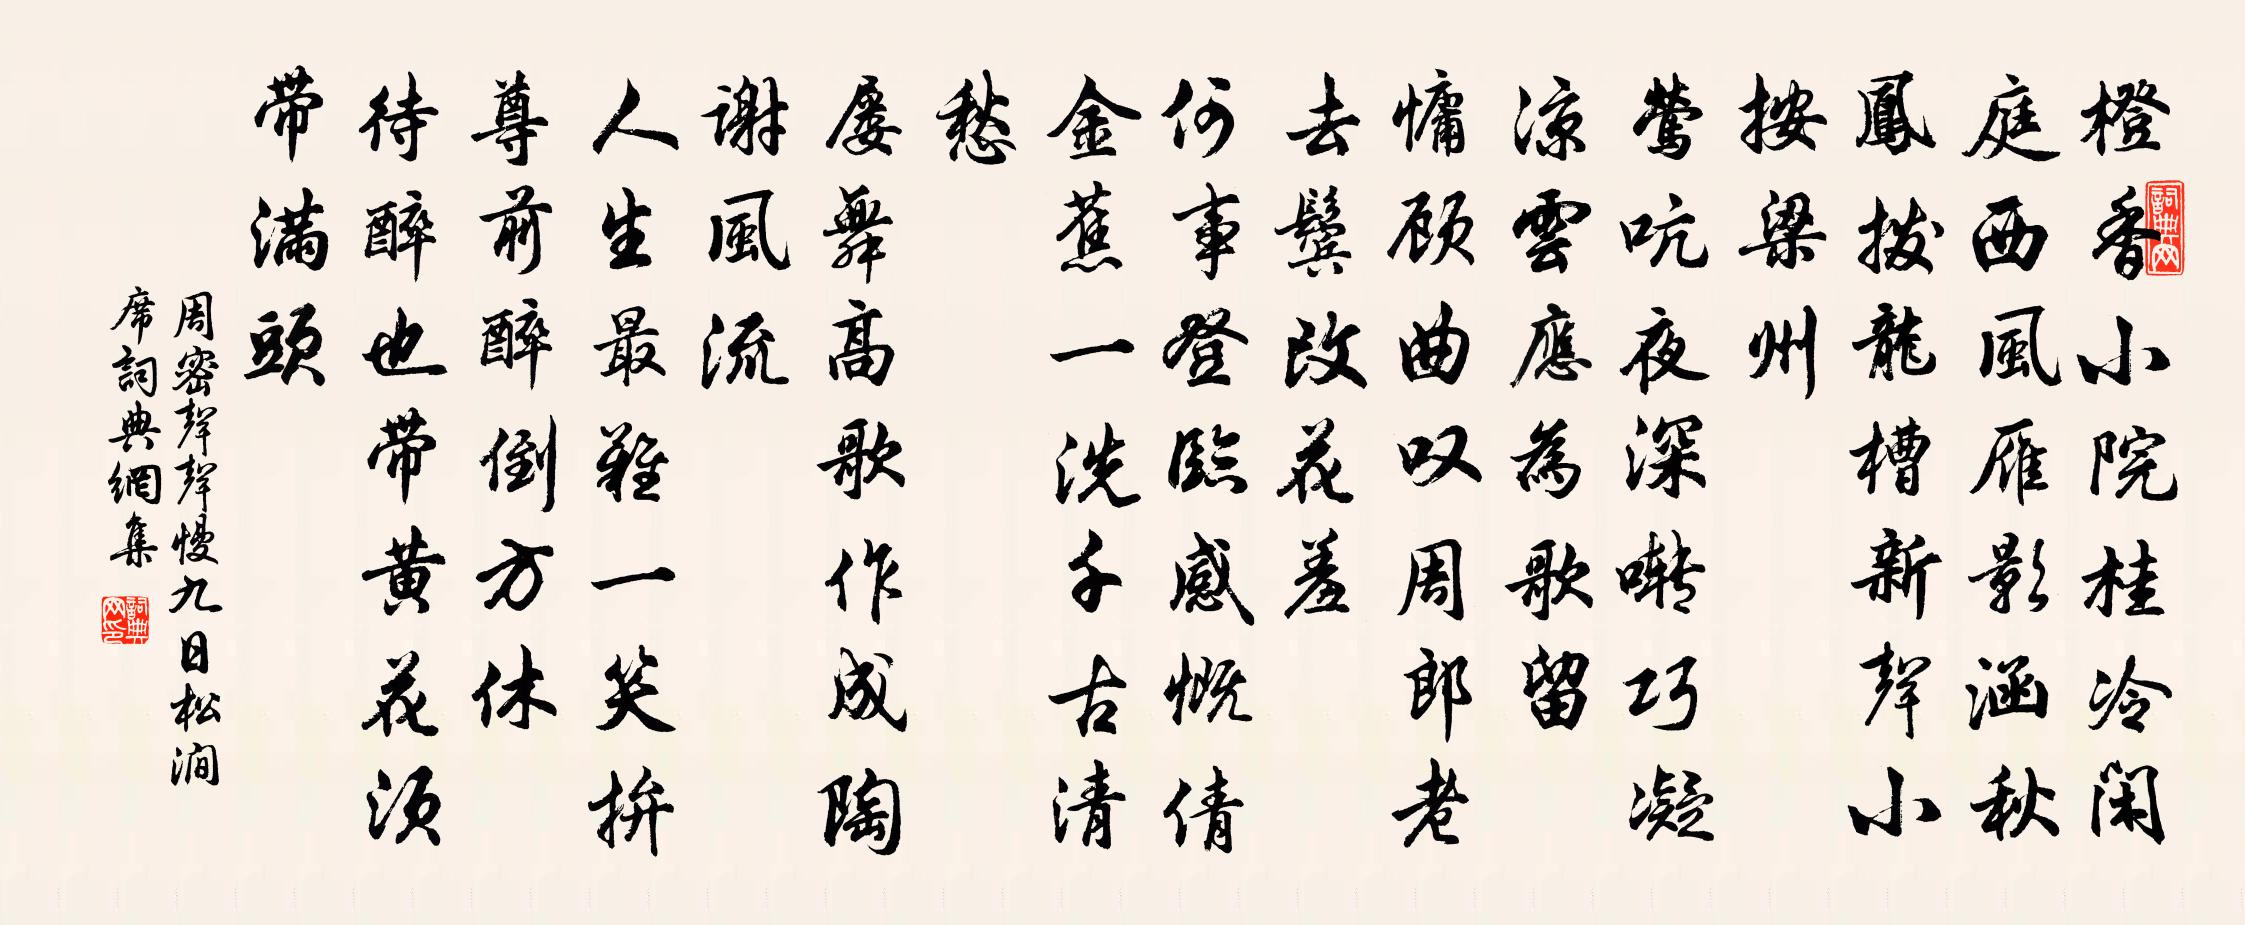 橙香小院桂冷闲
庭西風雁影涵秋
鳳撥龍槽新聲小
按梁州
莺吭夜深啭巧凝
凉雲應為歌留
慵顾曲叹周郎老
去鬓改花羞
何事登臨感慨倩
金蕉一洗千古清
愁
屡舞高歌作成陶
謝風流
人生最難一笑拚
尊前醉倒方休
待醉也带黄花须
带满頭
周密聲聲慢九日松澗
席詞典網集
詞典网
詞典网印